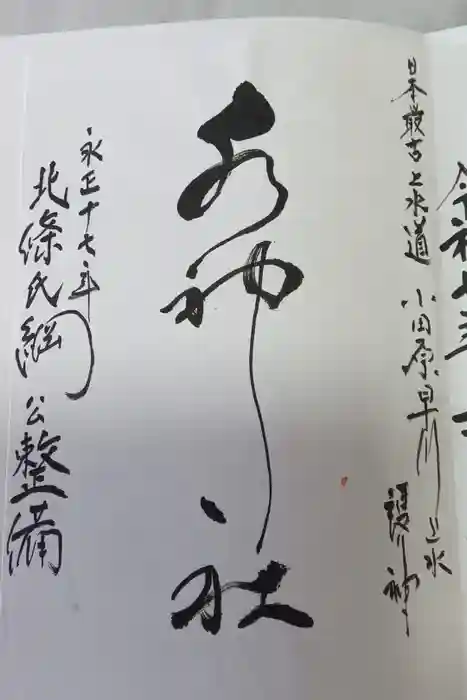 日本最古上水道 小田原早川上水
護り神
水神社
永正十七年
北條氏綱公整備